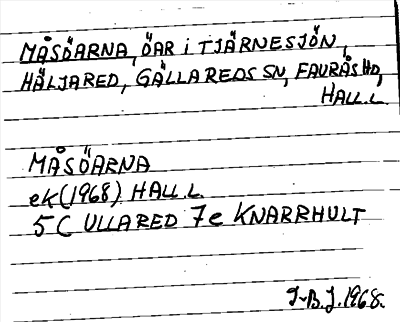 MÅSÖARNA, ÖAR i TJÄRNESJÖN,
HÄLJARED, GÄLLAREDS SN, FAURÅS HD,
HALL.L.
MÅSÖARNA
ek (1968) HALL.L.
5C ULLARED 7e KNARRHULT
J-B.J. 1968.